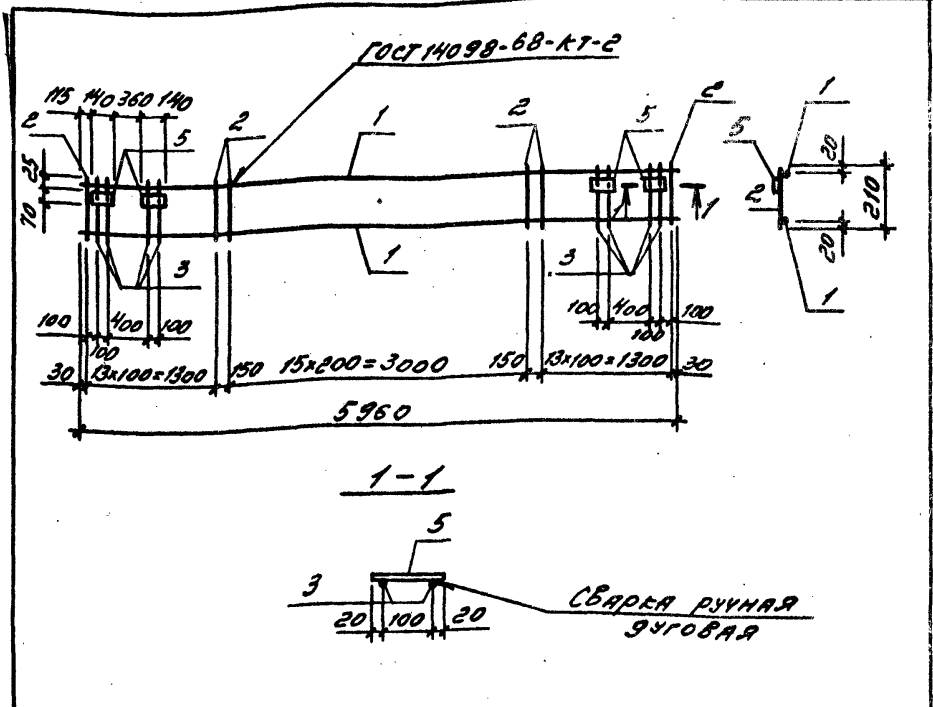 ГОСТ 14098-68-КТ-2
115 140 360 140
2 5 2 1 2 5 2 1
5 20
25
70
2 210
1
20
1 3 3 1
100 400 100 100 400 100
100 100
30 13х100=1300 150 15х200=3000 150 13х100=1300 30
5960
1-1
5
3
20 100 20
СВАРКА РУЧНАЯ
ДУГОВАЯ